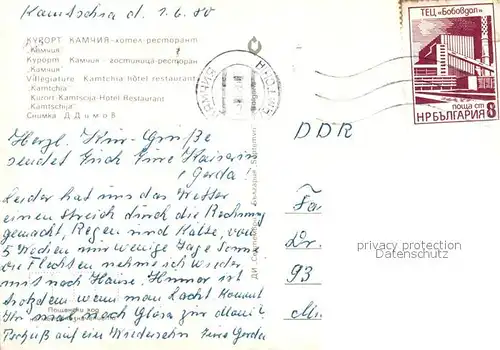 Kamtschia d. 1.6.80
КУРОРТ КАМЧИЯ-хотел-ресторант
„Камчия"
Курорт Камчия - гостиница-ресторан
„Камчия"
Villegiature Kamtchia hôtel restaurant
„Kamtchia"
Kurort Kamtscija-Hotel-Restaurant
„Kamtschija"
Снимка Д. Димов
ТЕЦ „Бобовдол"
поща ст
НР БЪЛГАРИЯ
КАМЧИЯ
DDR
Herzl. Kur-Grüße
sendet Euch Eure Kaiserin
Gerda!
Leider hat uns das Wetter
einen Streich durch die Rechnung
gemacht, Regen und Kälte, von
5 Wochen nur wenige Tage Sonne
die Flechten nehme ich wieder
mit nach Hause, Humor ist
trotzdem wenn man lacht Kommt
Ihr mal nach
auf ein Wiedersehn Eure Gerda
Пощенски код
Fa
Dr.
93
privacy protection
Datenschutz